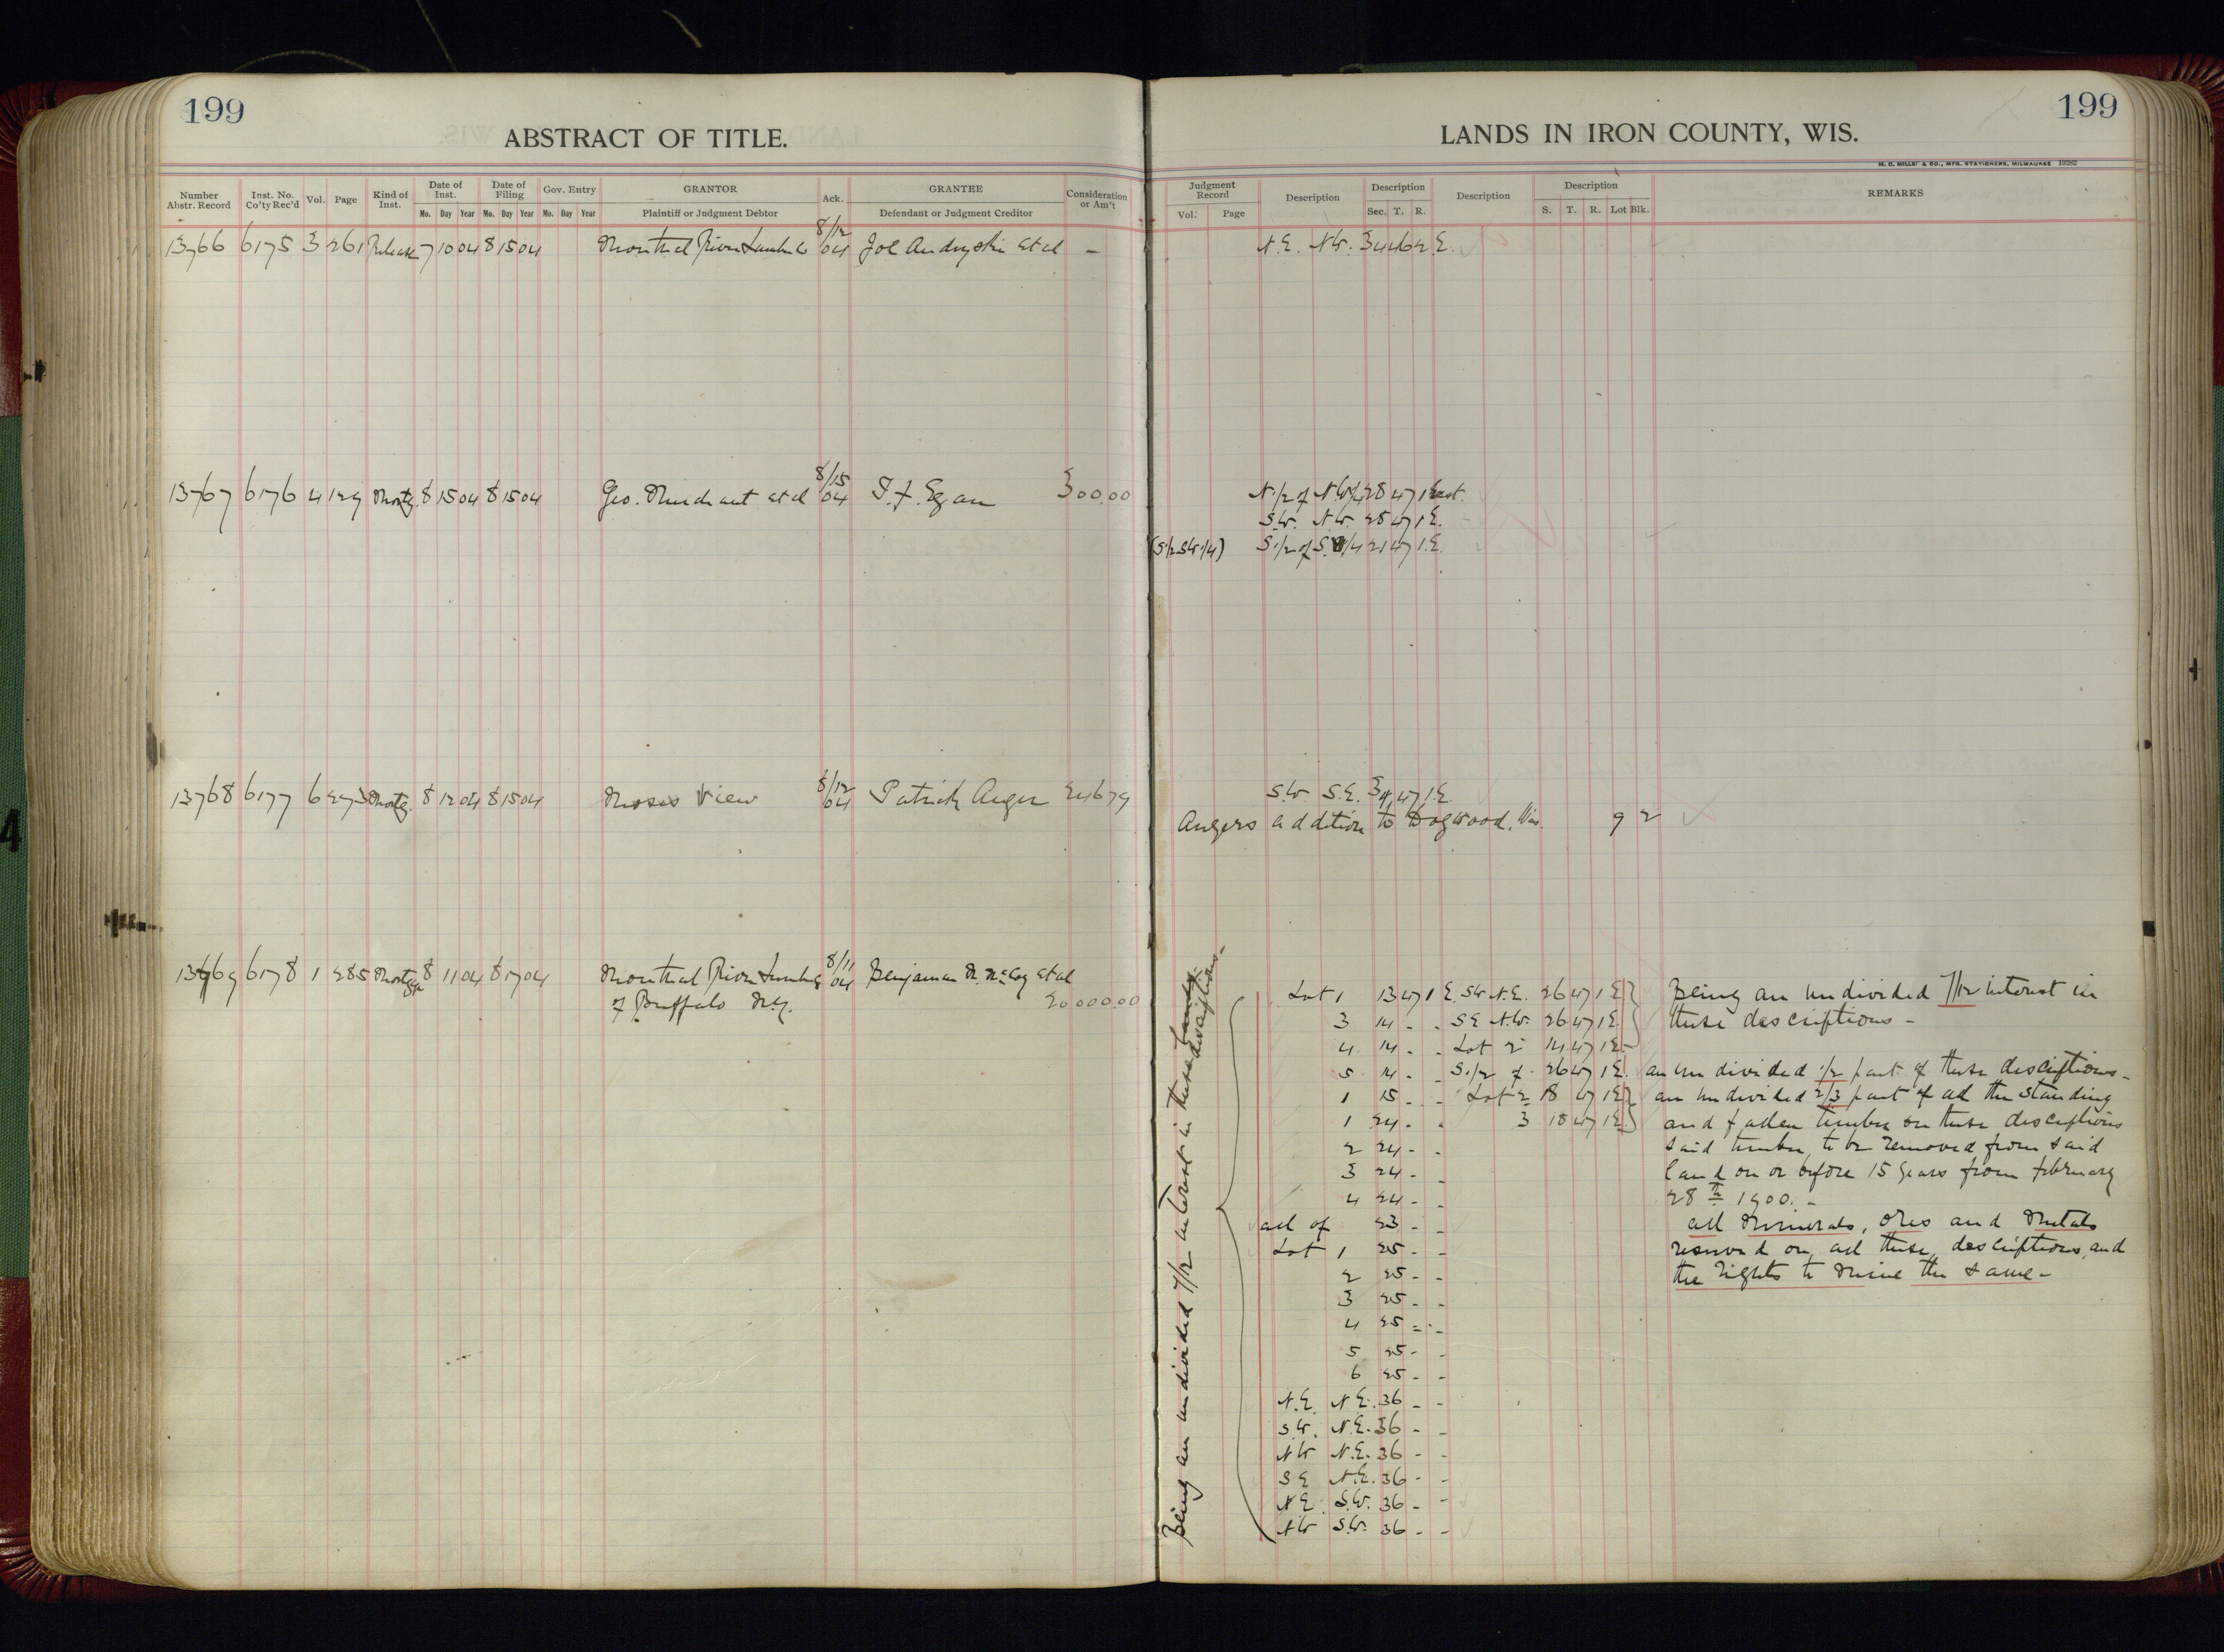 199
ABSTRACT OF TITLE.
Number Abstr. Record | Inst. No. Co'ty Rec'd | Vol. | Page | Kind of Inst. | Date of Inst. Mo. Day Year | Date of Filing Mo. Day Year | Gov. Entry Mo. Day Year | GRANTOR Plaintiff or Judgment Debtor | Ack. | GRANTEE Defendant or Judgment Creditor | Consideration or Am't
13766 6175 3 261 Release 7 10 04 8 15 04 Montreal River Lumber Co 8/12 04 Joe Andryski et al -
13767 6176 4 129 Mortg. 8 15 04 8 15 04 Geo. Marchant et al 8/15 04 T. F. Egan 300.00
13768 6177 6 273 Mortg. 8 12 04 8 15 04 Moses View 8/12 04 Patrick Anger 246 79
13769 6178 1 285 Mortgage 8 11 04 8 17 04 Montreal River Lumber Co 8/11 04 Benjamin McCoy et al
of Buffalo N.Y. 20000.00
199
LANDS IN IRON COUNTY, WIS.
H. C. MILLER & CO., MFG. STATIONERS, MILWAUKEE 19282
Judgment Record Vol. Page | Description | Description Sec. T. R. | Description | Description S. T. R. Lot Blk. | REMARKS
N.E. N.W. 34 46 2 E.
N.1/2 of N.W1/4 28 47 1 East.
S.W. N.W. 28 47 1 E.
(S1/2 SW1/4) S.1/2 of S.W1/4 21 47 1.E.
S.W. S.E. 34 47 1.E.
Angers addition to Dogwood, Wis. 9 2
Being an undivided 7/12 interest in these Lands
descriptions-
Lot 1 13 47 1 E. SW N.E. 26 47 1 E Being an undivided 7/12 interest in
3 14 - - SE N.W. 26 47 1 E. these descriptions -
4 14 - - Lot 2 14 47 1 E.
5 14 - - S.1/2 of 26 47 1 E. an undivided 1/2 part of these desciptions-
1 15 - - Lot 2 18 47 1 E an undivided 2/3 part of all the standing
1 24 - - 3 18 47 1 E. and fallen timber on these desciptions
2 24 - - said timber, to be removed from said
3 24 - - land on or before 15 years from february
4 24 - - 28th 1900. -
all of 23 - - all Minerals, ores and Metals
Lot 1 25 - - reserved on all these descriptions, and
2 25 - - the rights to Mine the same-
3 25 - -
4 25 - -
5 25 - -
6 25 - -
N.E. N.E. 36 - -
S.W. N.E. 36 - -
NW N.E. 36 - -
SE N.E. 36 - -
NE S.W. 36 - -
NW S.W. 36 - -
4